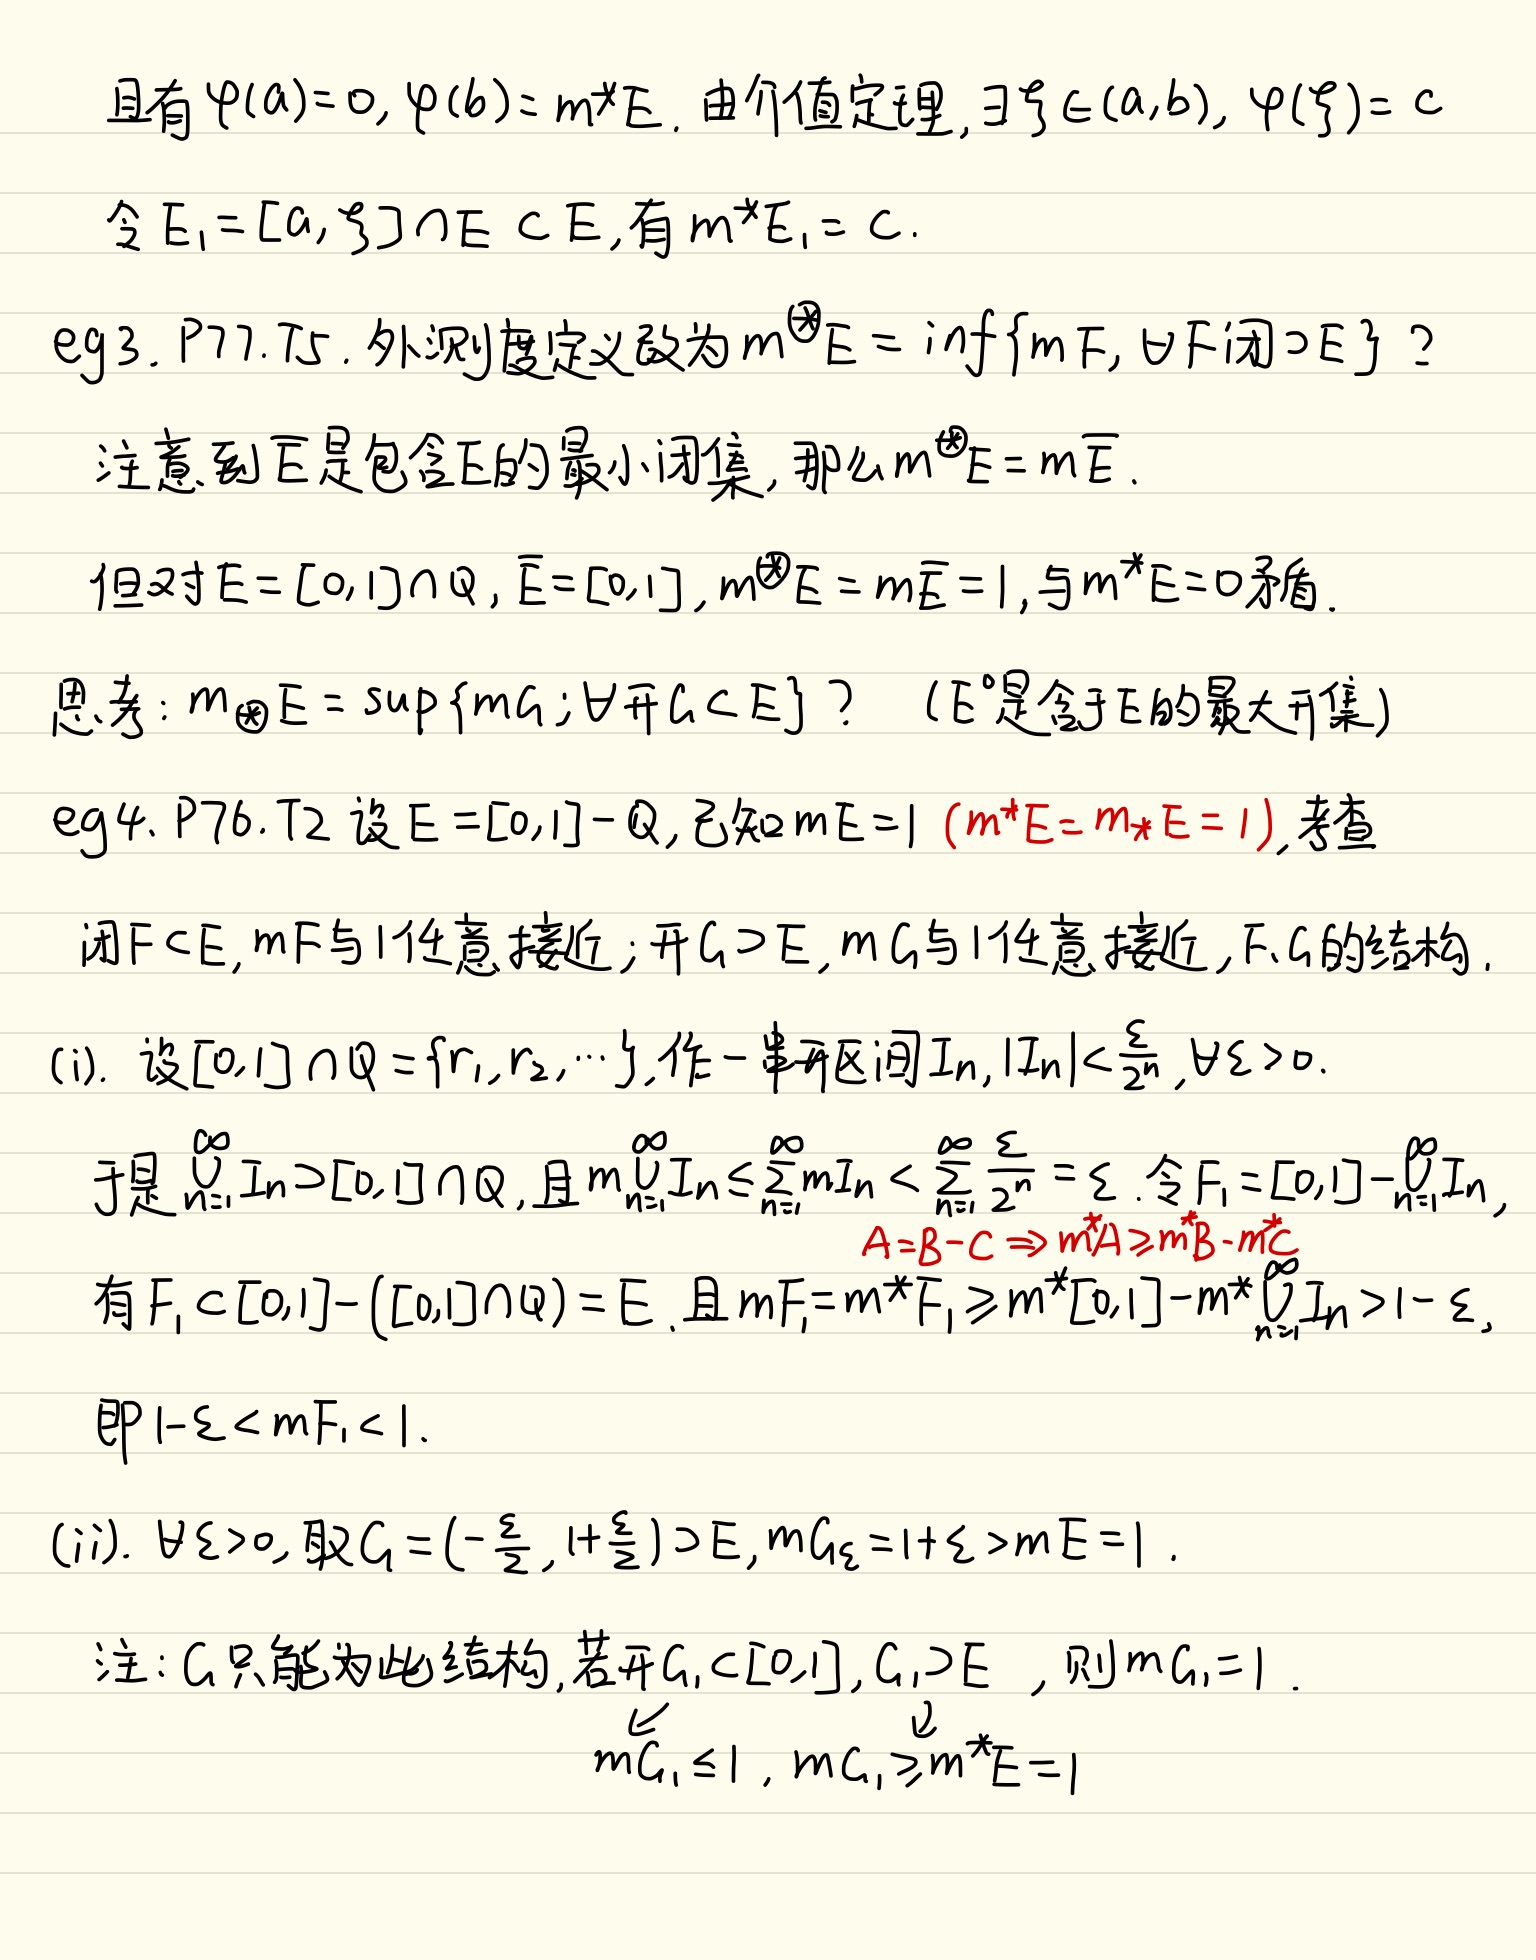 且有 φ(a)=0, φ(b)=m*E. 由介值定理, ∃ξ∈(a,b), φ(ξ)=c
令 E₁=[a,ξ]∩E ⊂ E, 有 m*E₁=c.
eg3. P77.T5. 外测度定义改为 m^⊛E = inf{mF, ∀F闭⊃E} ?
注意到 E̅ 是包含E的最小闭集, 那么 m^⊛E = mE̅.
但对 E=[0,1]∩Q, E̅=[0,1], m^⊛E=mE̅=1, 与 m*E=0 矛盾.
思考: m_⊛E = sup{mG; ∀开G⊂E} ? (E°是含于E的最大开集)
eg4. P76.T2 设 E=[0,1]-Q, 已知 mE=1 (m*E=m_*E=1), 考查
闭F⊂E, mF与1任意接近; 开G⊃E, mG与1任意接近, F、G的结构.
(i). 设[0,1]∩Q={r₁,r₂,…}, 作一串开区间 Iₙ, |Iₙ|<ε/2ⁿ, ∀ε>0.
于是 ⋃_{n=1}^∞ Iₙ⊃[0,1]∩Q, 且 m⋃_{n=1}^∞ Iₙ ≤ ∑_{n=1}^∞ mIₙ < ∑_{n=1}^∞ ε/2ⁿ = ε. 令 F₁=[0,1]-⋃_{n=1}^∞ Iₙ,
A=B-C ⇒ m*A≥m*B-m*C
有 F₁⊂[0,1]-([0,1]∩Q)=E. 且 mF₁=m*F₁≥m*[0,1]-m*⋃_{n=1}^∞ Iₙ>1-ε,
即 1-ε<mF₁<1.
(ii). ∀ε>0, 取G=(-ε/2, 1+ε/2)⊃E, mG_ε=1+ε>mE=1.
注: G只能为此结构, 若开G₁⊂[0,1], G₁⊃E, 则 mG₁=1.
↙ ↓
mG₁≤1, mG₁≥m*E=1